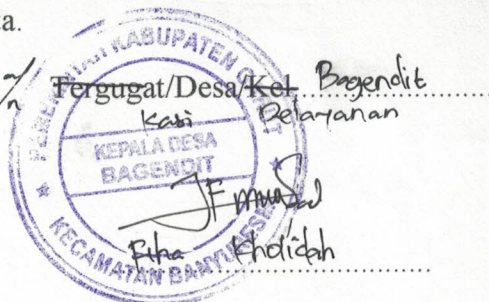 ta.
a/n Tergugat/Desa/Kel. Bagendit
Kasi Pelayanan
PEMERINTAH KABUPATEN GARUT
KEPALA DESA
BAGENDIT
KECAMATAN BANYURESMI
Fitha Kholidah